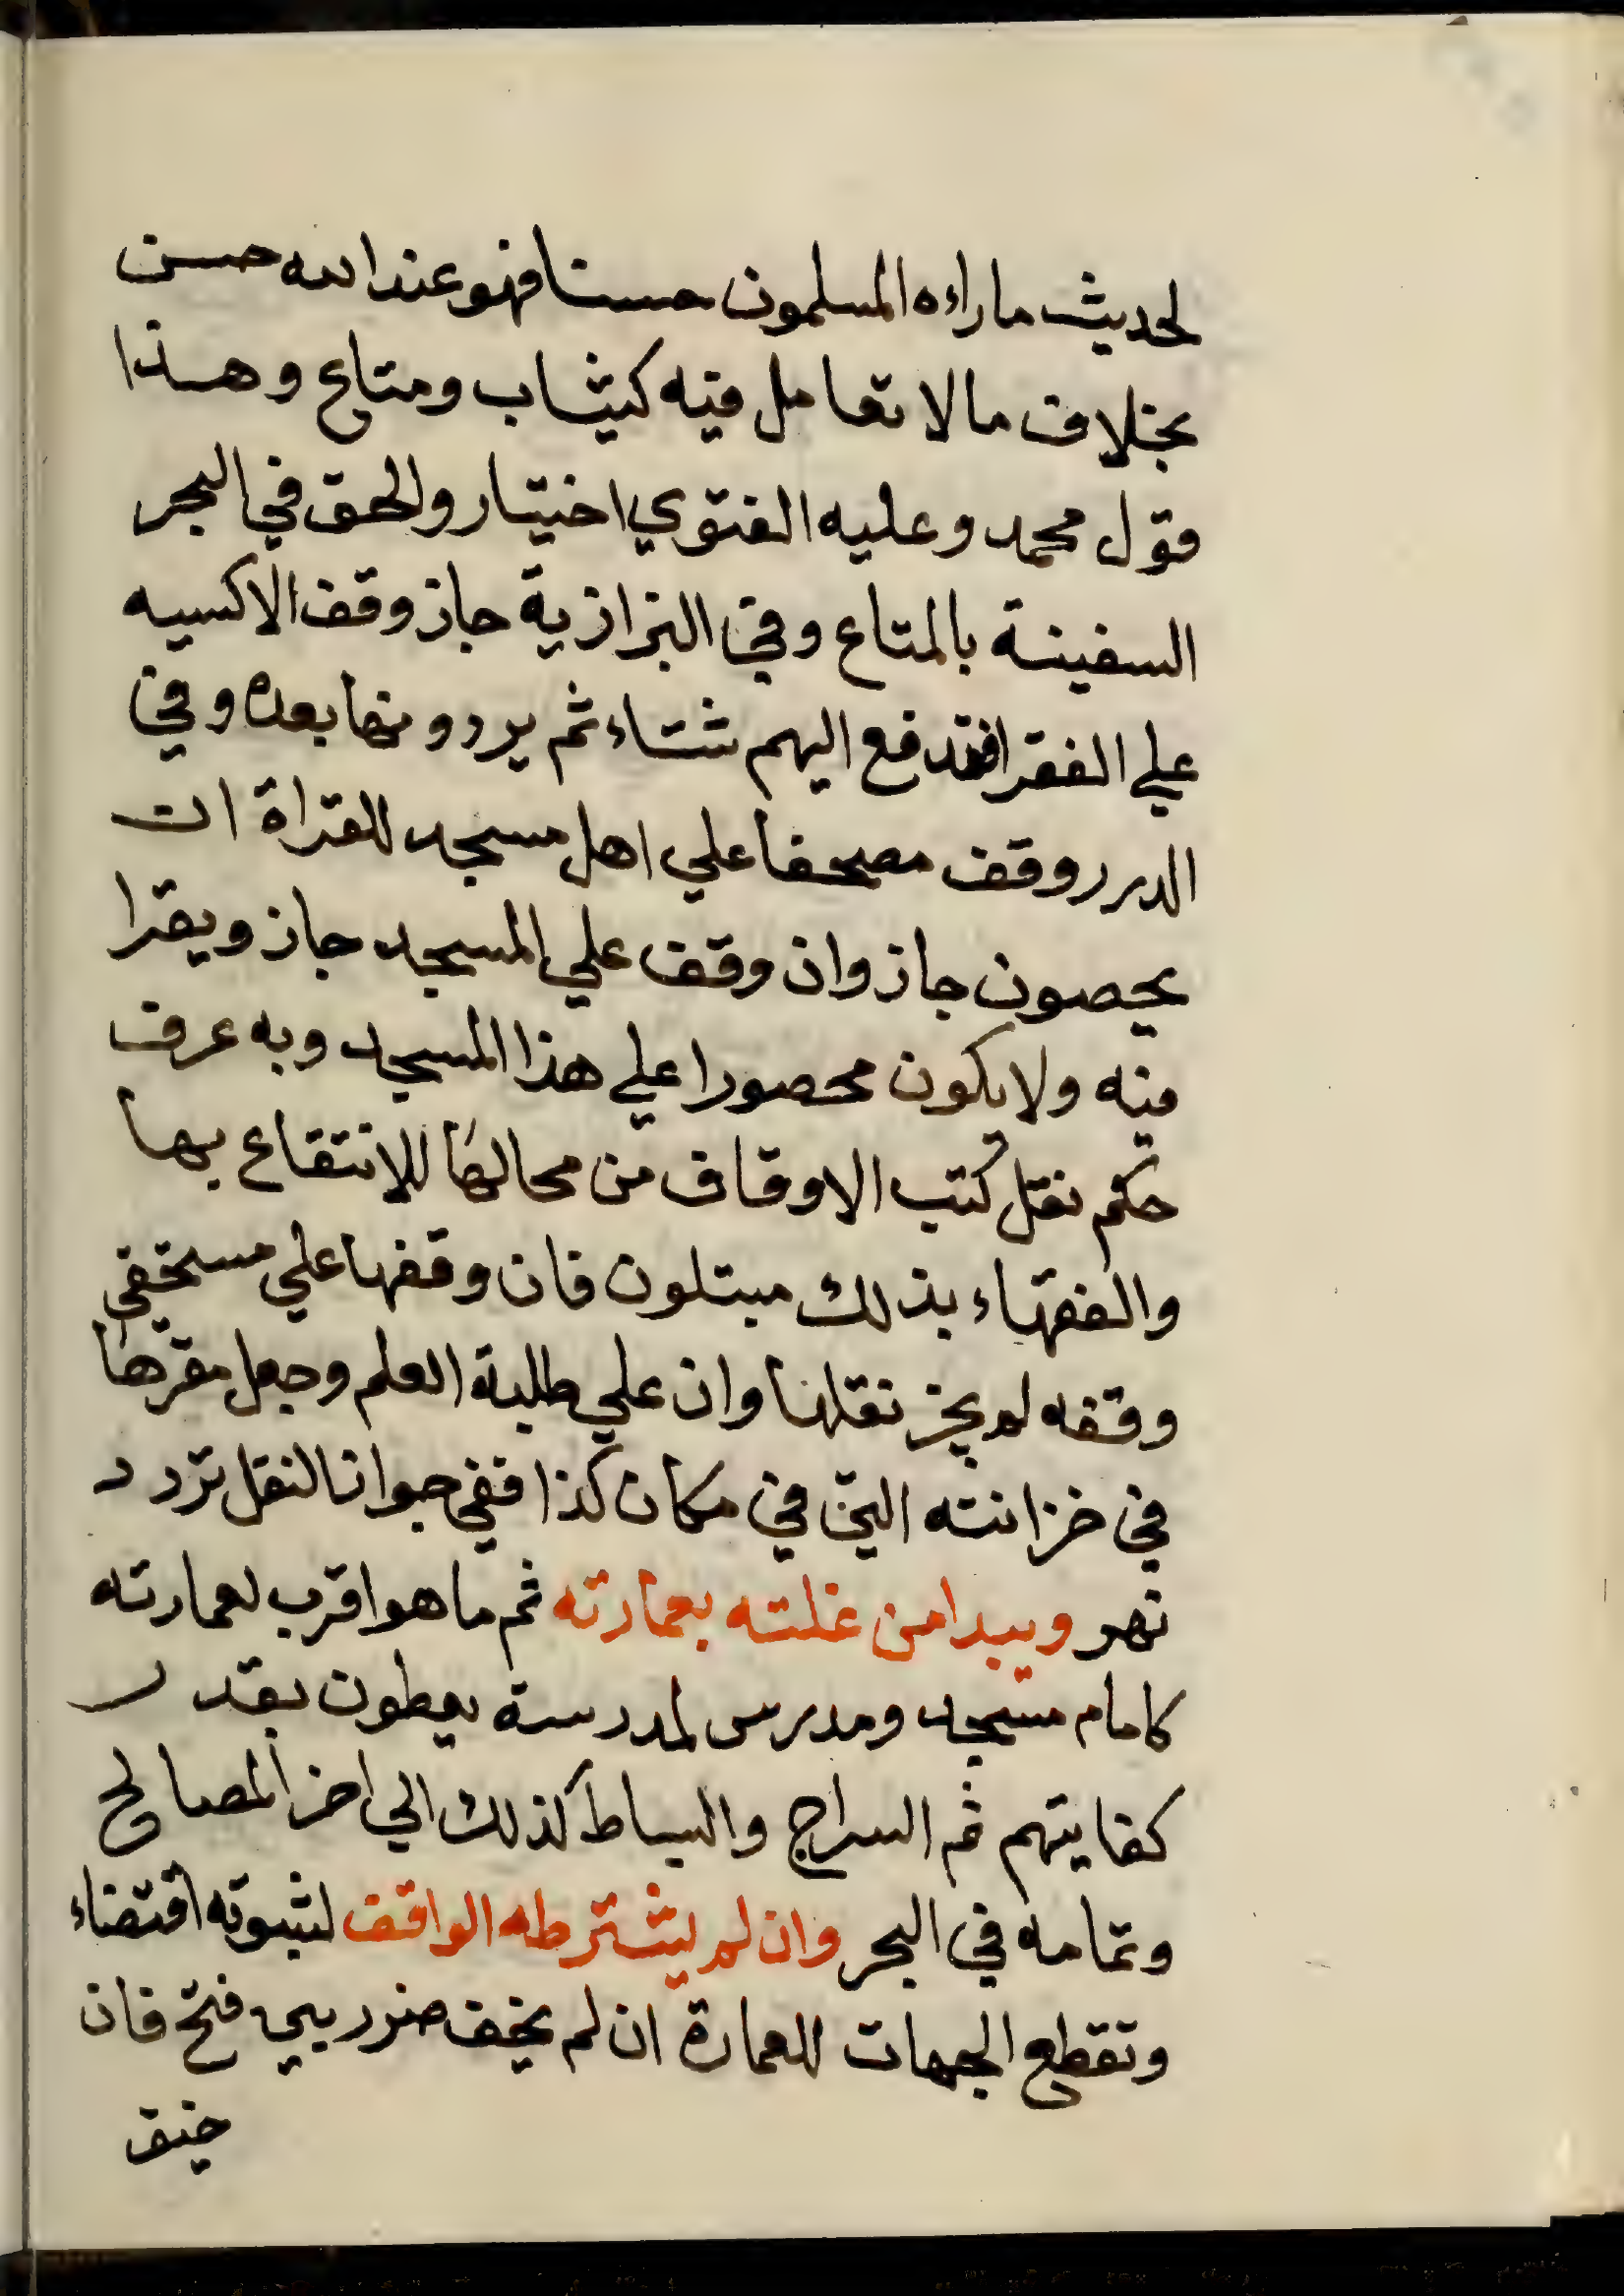 لحديث ماراءه المسلمون حسنا فهو عند الله حسن
بخلاف مالا تعامل فيه كثياب ومتاع وهذا
قول محمد وعليه الفتوي اختيار والحق في البحر
السفينة بالمتاع وفي البزازية جاز وقف الاكسيه
علي الفقرا فتدفع اليهم شتاء ثم يردونها بعده وفي
الدرر وقف مصحفا علي اهل مسجد للقراة ان
يحصون جاز وان وقف علي المسجد جاز ويقرا
فيه ولا يكون محصورا علي هذا المسجد وبه عرف
حكم نقل كتب الاوقاف من محالها للانتفاع بها
والفقهاء بذلك مبتلون فان وقفها علي مستحقي
وقفه لم يجز نقلها وان علي طلبة العلم وجعل مقرها
في خزانته التي في مكان كذا ففي جواز النقل تردد
نهر ويبدا من غلته بعمارته ثم ما هو اقرب لعمارته
كامام مسجد ومدرس لمدرسة يعطون بقدر
كفايتهم ثم السراج والبساط كذلك الي اخر المصالح
وتمامه في البحر وان لم يشترطه الواقف لثبوته اقتضاء
وتقطع الجهات للعمارة ان لم يخف ضرر بين فتح فان
خيف